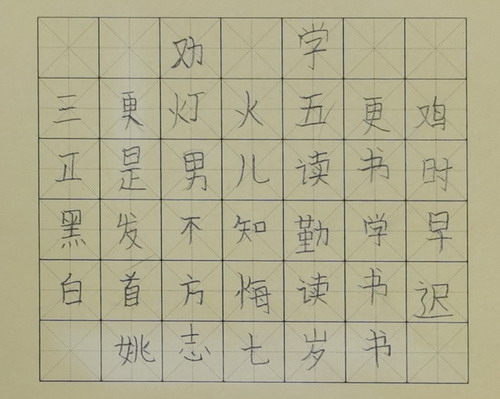 劝学
三更灯火五更鸡
正是男儿读书时
黑发不知勤学早
白首方悔读书迟
姚志七岁书